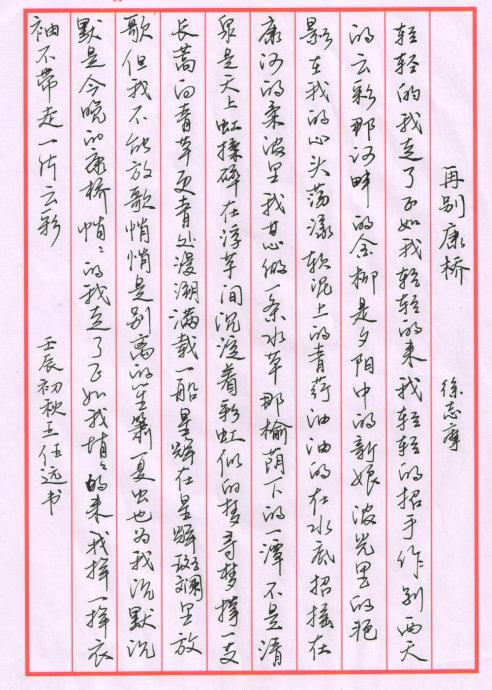 再别康桥 徐志摩
轻轻的我走了正如我轻轻的来我轻轻的招手作别西天
的云彩那河畔的金柳是夕阳中的新娘波光里的艳
影在我的心头荡漾软泥上的青荇油油的在水底招摇在
康河的柔波里我甘心做一条水草那榆荫下的一潭不是清
泉是天上虹揉碎在浮草间沉淀着彩虹似的梦寻梦撑一支
长蒿向青草更青处漫溯满载一船星辉在星辉斑斓里放
歌但我不能放歌悄悄是别离的笙箫夏虫也为我沉默沉
默是今晚的康桥悄々的我走了正如我悄々的来我挥一挥衣
袖不带走一片云彩 壬辰初秋王任远书